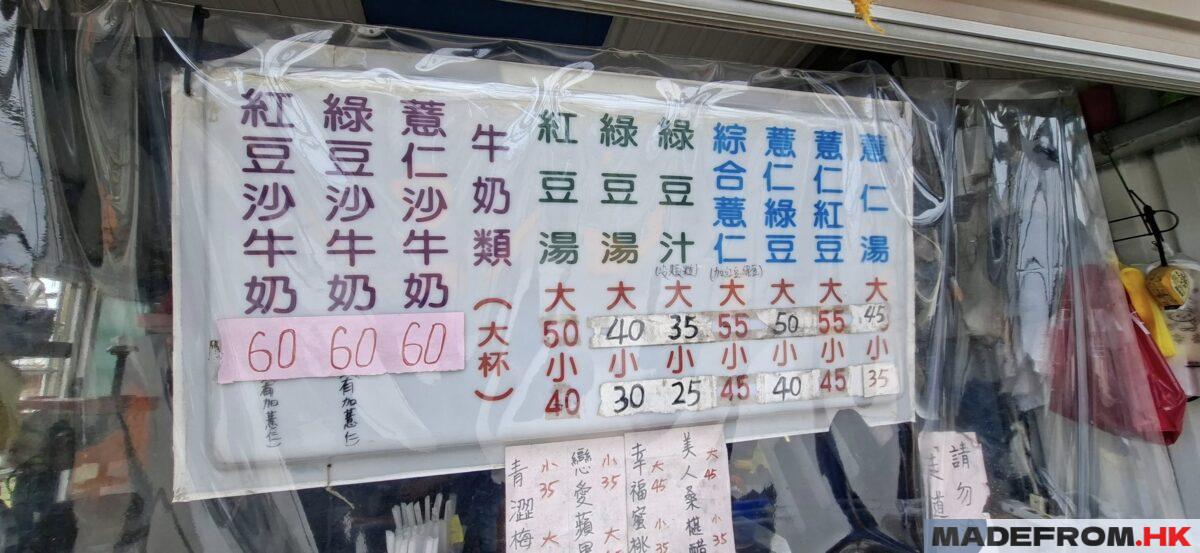 薏仁湯 大 45 小 35
薏仁紅豆 大 55 小 45
薏仁綠豆 大 50 小 40
綜合薏仁 大 55 小 45
綠豆汁 大 35 小 25
綠豆湯 大 40 小 30
紅豆湯 大 50 小 40
牛奶類（大杯）
薏仁沙牛奶 60
綠豆沙牛奶 60
有加薏仁)
紅豆沙牛奶 60
有加薏仁)
美人桑椹醋
大 45 小 35
幸福蜜桃
大 45 小 35
戀愛蘋果
小 35 大
青澀梅
小 35 大
請勿
MADEFROM.HK